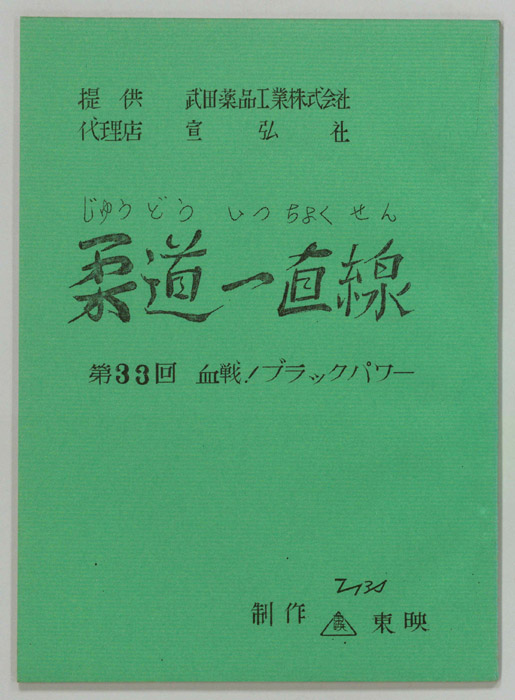 提供 武田薬品工業株式会社
代理店 宣弘社
じゅうどう いっちょくせん
柔道一直線
第33回 血戦!ブラックパワー
制作 東映